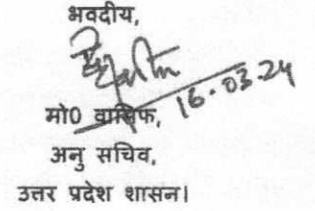 भवदीय,
16.03.24
मो0 वासिफ,
अनु सचिव,
उत्तर प्रदेश शासन।